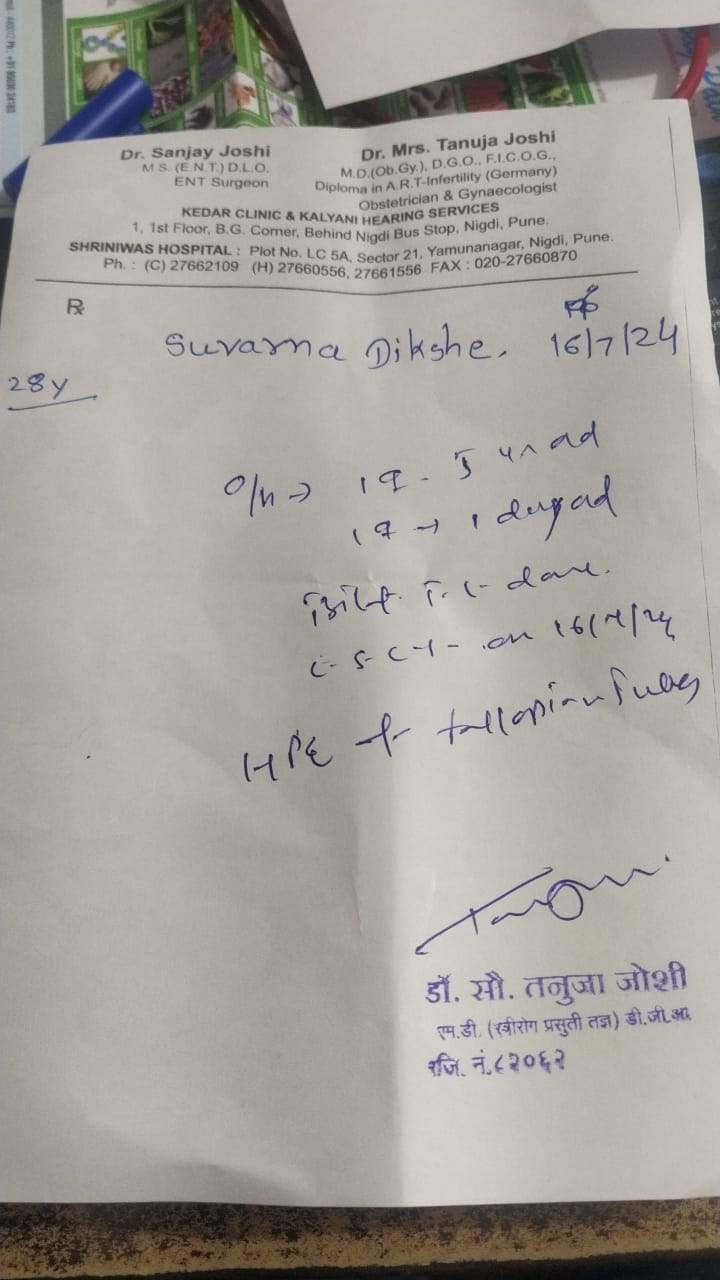 Dr. Sanjay Joshi
M S. (E.N.T.) D.L.O.
ENT Surgeon
Dr. Mrs. Tanuja Joshi
M.D.(Ob.Gy.), D.G.O., F.I.C.O.G.,
Diploma in A.R.T-Infertility (Germany)
Obstetrician & Gynaecologist
KEDAR CLINIC & KALYANI HEARING SERVICES
1, 1st Floor, B.G. Corner, Behind Nigdi Bus Stop, Nigdi, Pune.
SHRINIWAS HOSPITAL : Plot No. LC 5A, Sector 21, Yamunanagar, Nigdi, Pune.
Ph. : (C) 27662109 (H) 27660556, 27661556 FAX : 020-27660870
℞
Suvarna Dikshe. 16/7/24
28y
1 day ad
T. L. done.
L.S.C.S. on 16/7/24
HPE of fallopian tubes
डॉ. सौ. तनुजा जोशी
एम.डी. (स्त्रीरोग प्रसुती तज्ञ) डी.जी.ओ
रजि. नं. ८२०६२